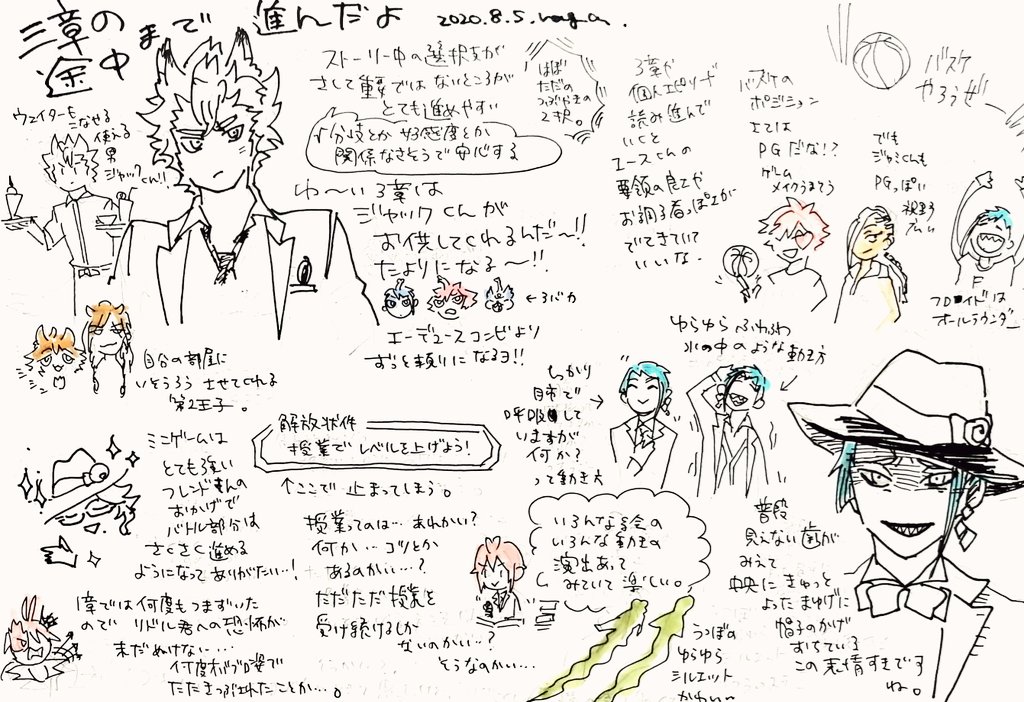 三章の
途中
まで
進んだよ
2020.8.5.
ウェイターを
こなせる
使える
男
ジャックくん!!
ストーリー中の選択支が
さして重要ではないところが
とても進めやすい
分岐とか好感度とか
関係なさそうで安心する
ほぼ
ただの
つぶやきの
2択。
わ〜い3章は
ジャックくんが
お供してくれるんだ〜!!
たよりになる〜!!
←3バカ
エーデュースコンビより
ずっと頼りになるヨ!!
3章や
個人エピソード
読み進んで
いくと
エースくんの
要領の良さや
お調子者っぽさが
でてきていて
いいな
バスケの
ポジション
エースは
PGだな!?
ゲーム
メイクうまそう
でも
ジャミルくんも
PGっぽい
視野
バスケ
やろうぜ
F
フロイドは
オールラウンダー
自分の部屋に
いそうろうさせてくれる
第2王子。
ミニゲームは
とても強い
フレンドさんの
おかげで
バトル部分は
さくさく進める
ようになってありがたい…!
1章では何度もつまずいた
ので リドル君への恐怖が
まだぬけない…
何度オバブロ姿で
たたきつぶされたことか…。
解放状件
授業でレベルを上げよう!
↑ここで止まってしまう。
授業ってのは…あれかい?
何か…コツとか
あるのかい…?
ただただ授業を
受け続けるしか
ないのかい…?
そうなのかい…
ゆらゆらふわふわ
水の中のような動き方
しっかり
肺で
呼吸して
いますが
何か?
って動き方
いろんな絵の
いろんな動きの
演出あって
みていて楽しい。
うつぼの
ゆらゆら
シルエット
かわい〜
普段
見えない歯が
みえて
中央にきゅっと
よったまゆげに
帽子のかげ
おちている
この表情すきです
ね。